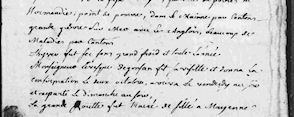 Normandie, point de pommes, dans le Maine par cantons
grande guerre sur Mer avec les Anglois, beaucoup de
Maladies par Cantons
fait sec sans grand froid et toute l'année
Monseigneur l'evesque fit sa visitte et donna la
confirmation le deux octobre, arriva le vendredy au soir
et repartit le dimanche au soir,
La grande fut Marié de fille à Mayenne